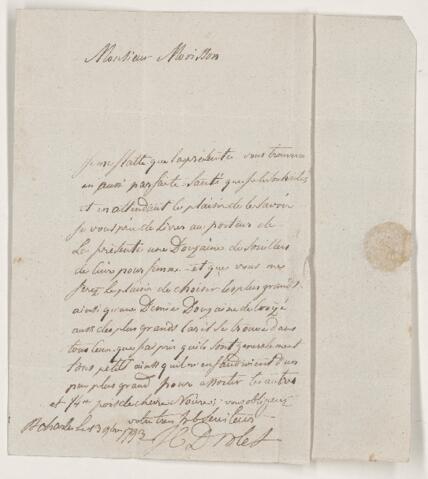 Monsieur Morisson
Je me flatte que la présente vous trouvera
en aussi parfaite santé que je le souhaite
et en attendant le plaisir de le savoir
Je vous prie de livrer au porteur de
La présente une Douzaine de souilliers
de cuire pour femme et que vous me
ferez le plaisir de choisir les plus grands
ainsi qu'une Demie Douzaine de
aussi des plus grands car il se trouve dans
tous ceux que jai pris qu'ils sont generalement
tous petits ainsi qu'il m'en faudroient d'un
peu plus grand pour assortir les autres
et 1/4 de chevre Noires vous obligerez
votre tres hble serviteur
St Charles le 13 1793